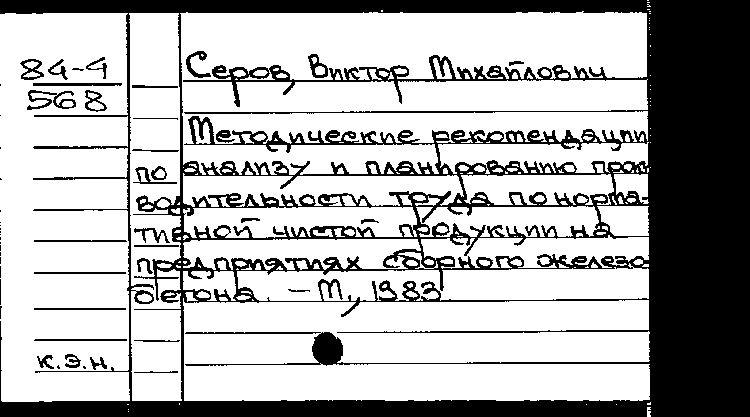 84-4
568
Серов, Виктор Михайлович
Методические рекомендации
по анализу и планированию произ
водительности труда по норма-
тивной чистой продукции на
предприятиях сборного железо
бетона. – М., 1983
к.э.н.